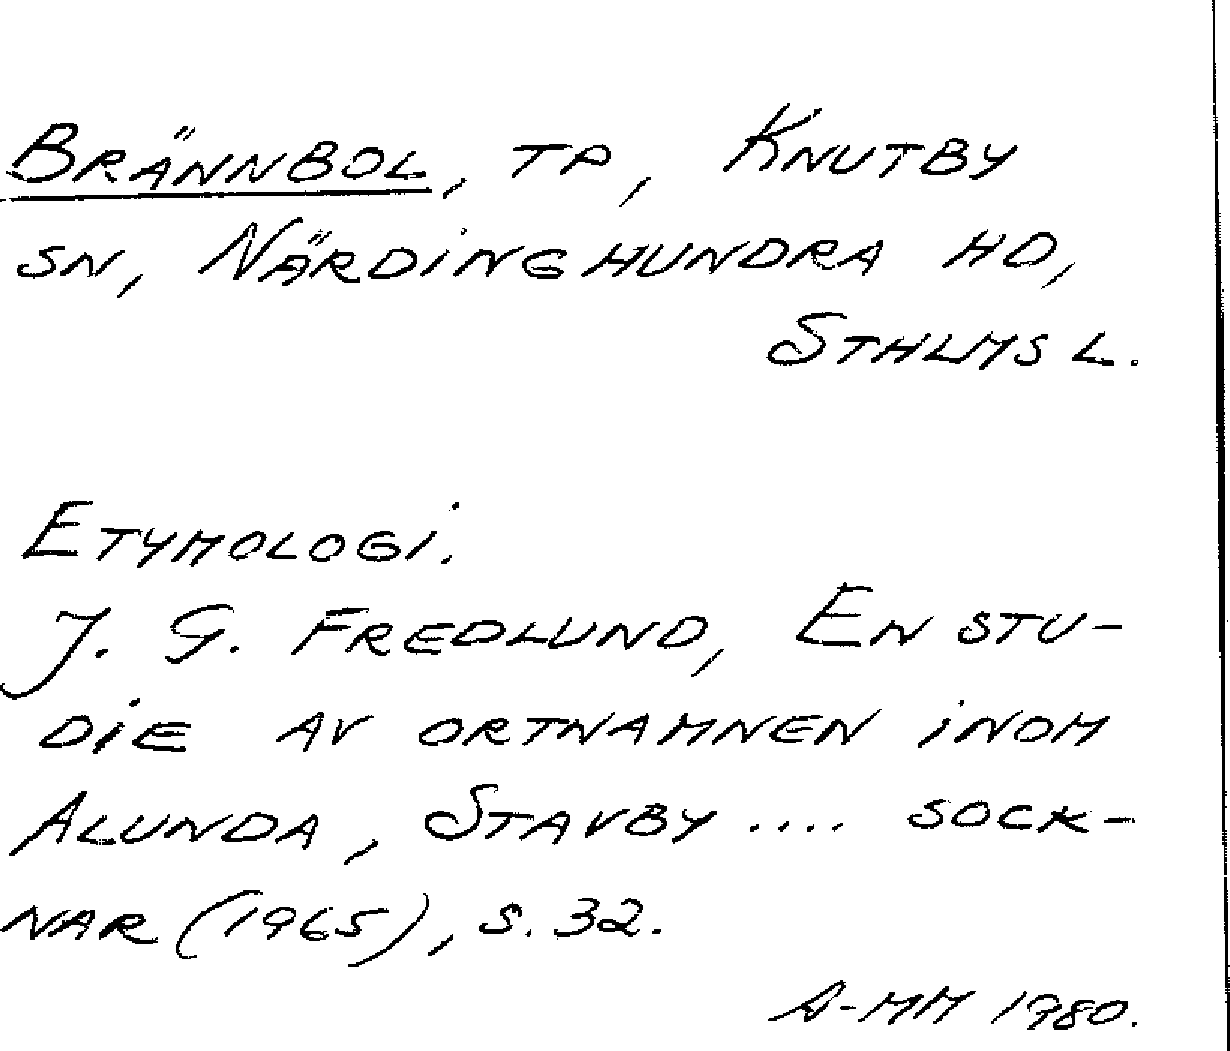 Brännbol, tp, Knutby
sn, Närdinghundra hd,
Sthlms l.
Etymologi.
J. G. Fredlund, En stu-
die av ortnamnen inom
Alunda, Stavby .... sock-
nar (1965), s. 32.
A-MM 1980.